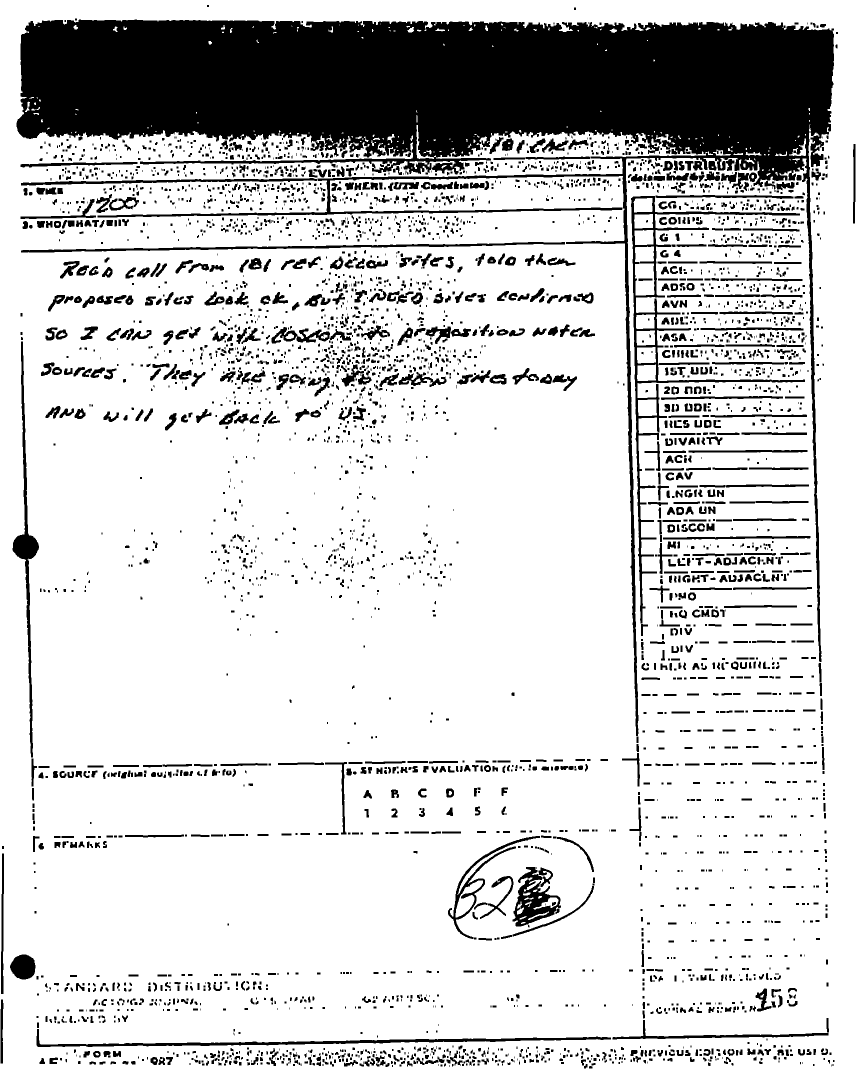 181 Chem
EVENT
1. WHEN
1200
2. WHERE (UTM Coordinates)
3. WHO/WHAT/WHY
Rec'd call From 181 ref Decon sites, told them
proposed sites look ok, But I NEED sites confirmed
so I can get with COSCOM to preposition water
sources. They are going to recon sites today
AND will get back to us.
4. SOURCE (original supplier of info)
5. SENDER'S EVALUATION (Circle answers)
A B C D E F
1 2 3 4 5 6
6 REMARKS
32
STANDARD DISTRIBUTION:
RECEIVED BY
FORM
DISTRIBUTION
CG
CORPS
G 1
G 4
ADSO
AVN
ASA
1ST BDE
2D BDE
3D BDE
RES BDE
DIVARTY
ACR
CAV
ENGR BN
ADA BN
DISCOM
MI
LEFT-ADJACENT
RIGHT-ADJACENT
PMO
HQ CMDT
DIV
DIV
OTHER AS REQUIRED
DATE/TIME RECEIVED
JOURNAL NUMBER 158
PREVIOUS EDITION MAY BE USED.